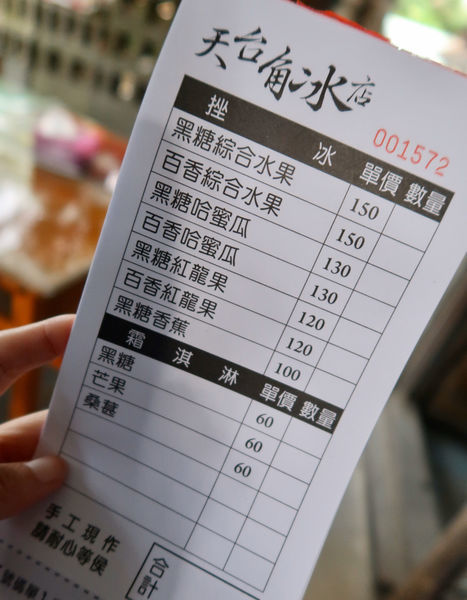 天台角冰店
001572
挫冰 單價 數量
黑糖綜合水果 150
百香綜合水果 150
黑糖哈蜜瓜 130
百香哈蜜瓜 130
黑糖紅龍果 120
百香紅龍果 120
黑糖香蕉 100
霜淇淋 單價 數量
黑糖 60
芒果 60
桑葚 60
手工現作
請耐心等侯
合計